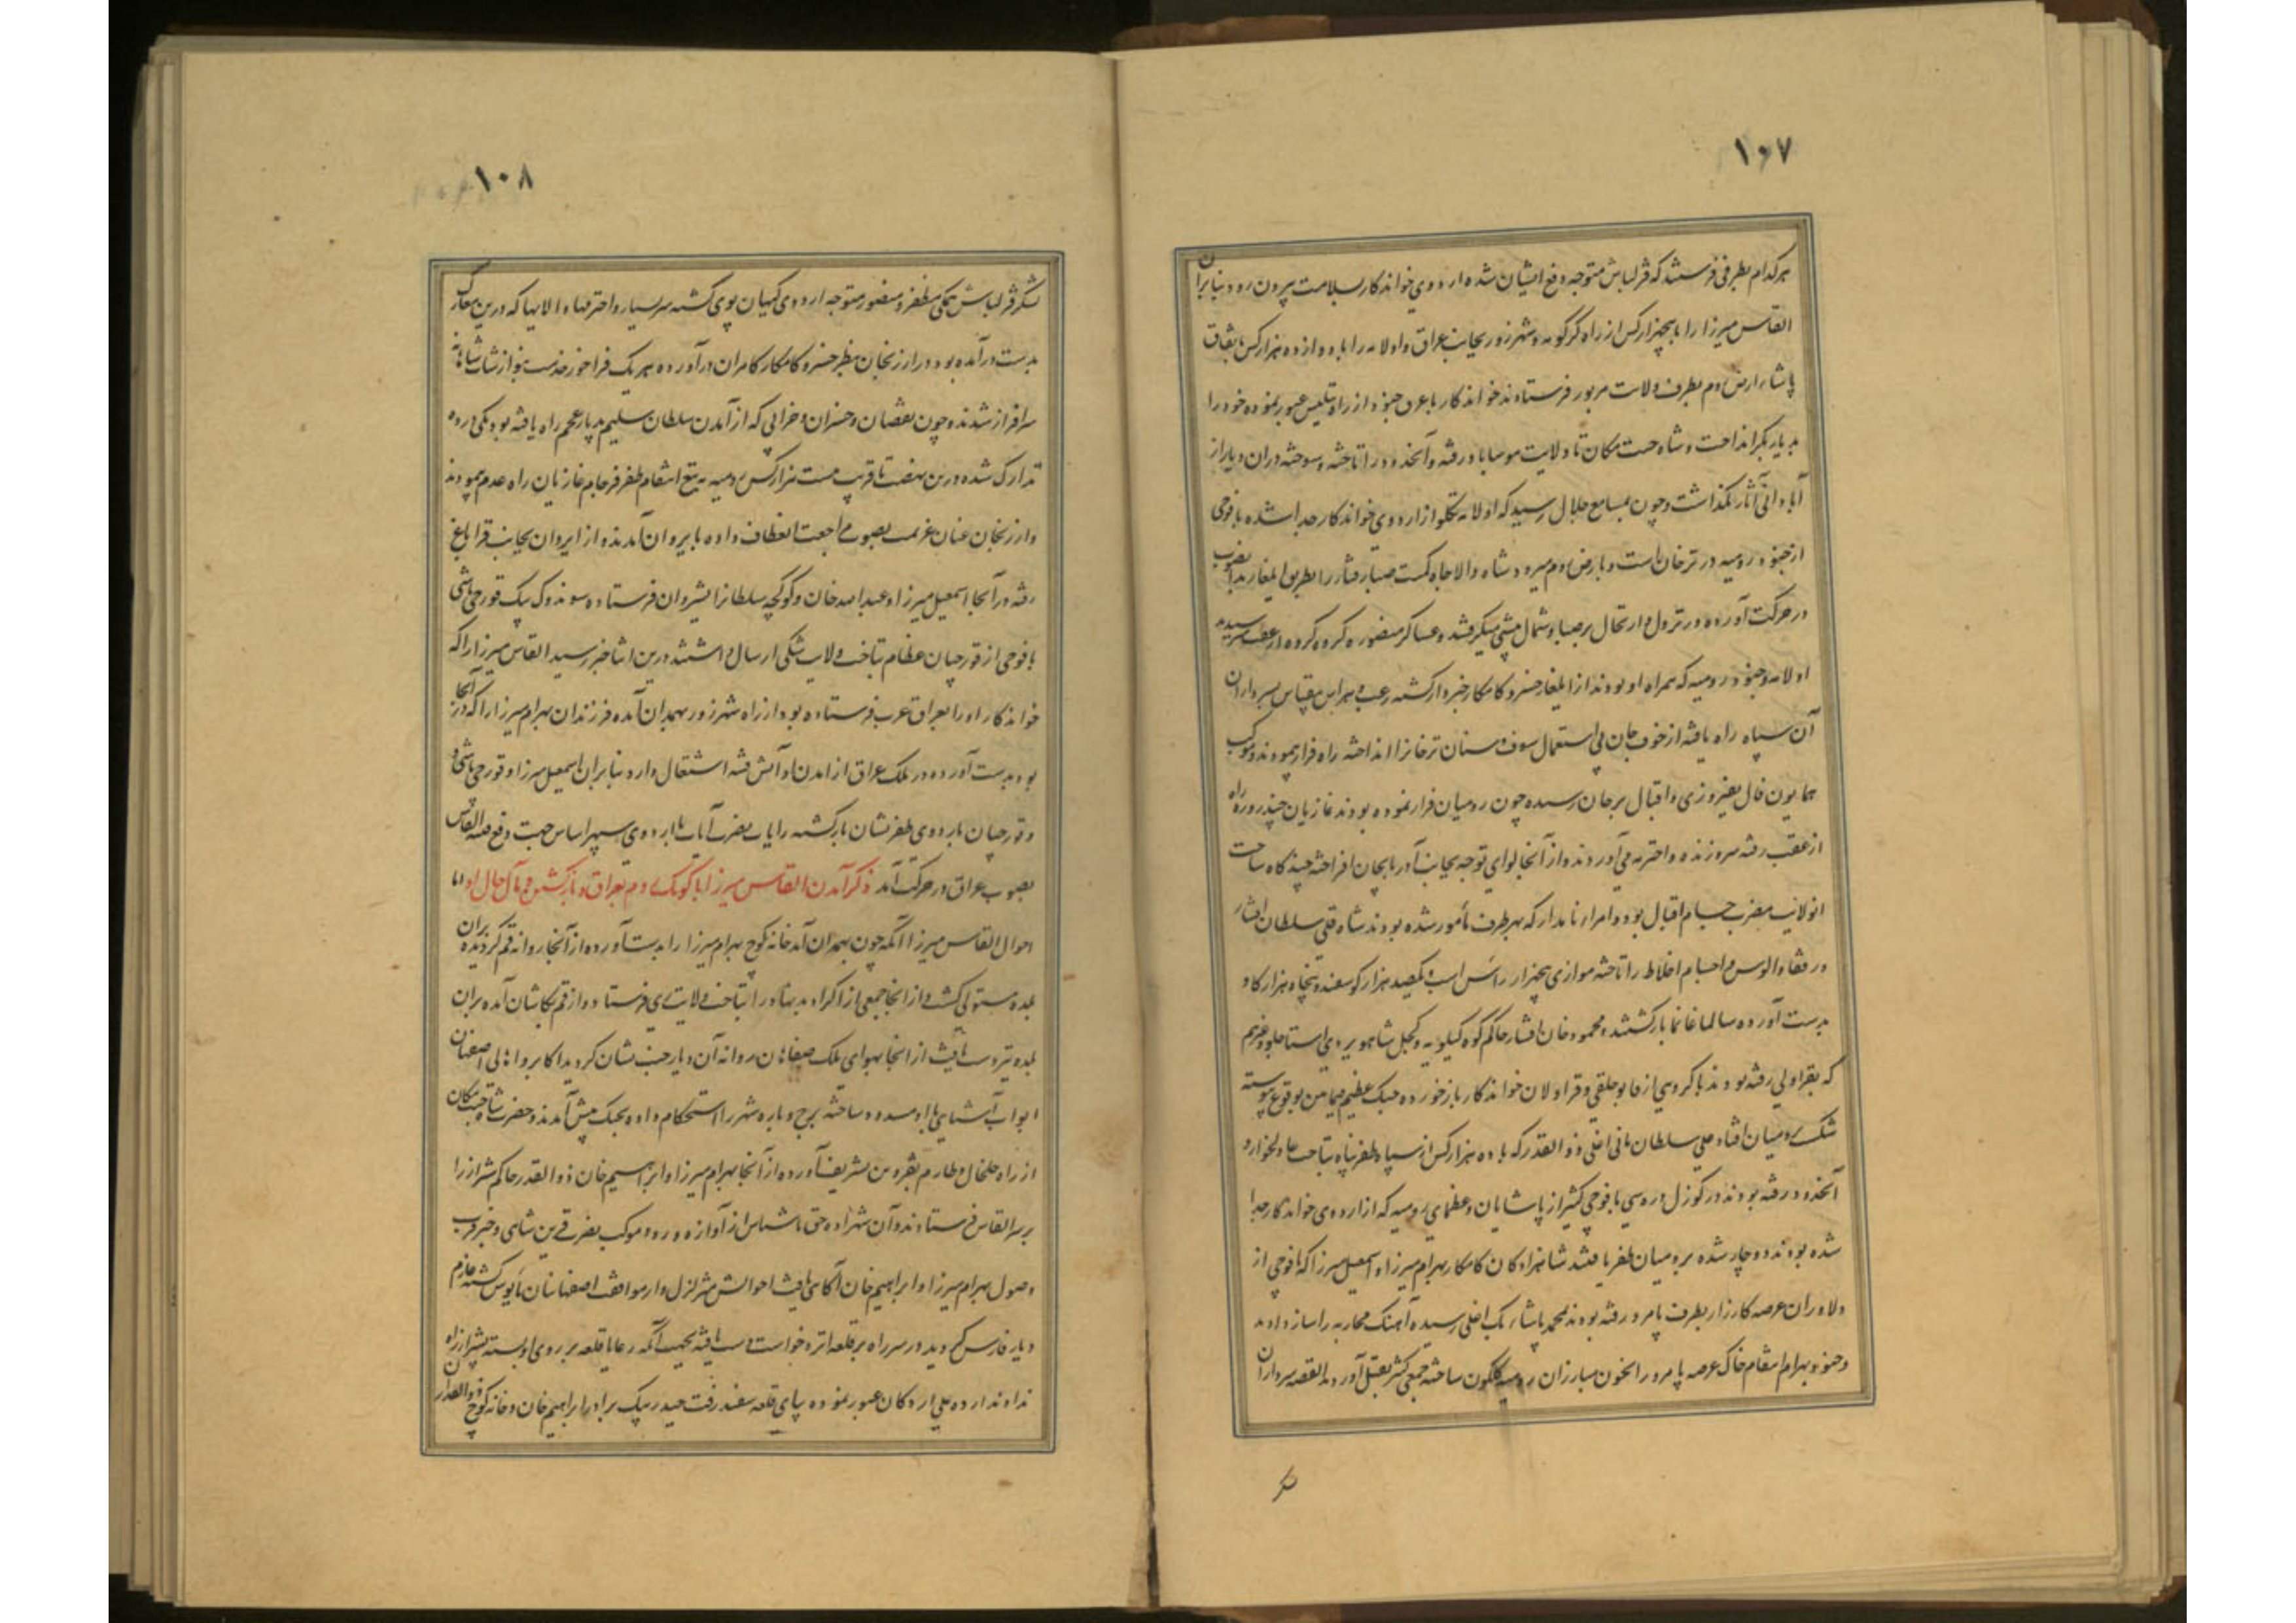 ۱۰۷
هرکدام بطرفی فرستند که قزلباش متوجه دفع ایشان شده اردوی خواندکار بسلامت بیرون رود بنابران
القاس میرزا را با پنجهزار کس از راه کرکویه و شهرزور بجانب عراق و اولامه را با دوازده هزار کس باتفاق
پاشاء ارض روم بطرف ولایت مزبور فرستادند خواندکار با عرق جنود از راه بتلیس عبور نموده خود را
بدیاربکر انداخت و شاه جنت مکان تا ولایت موساباد رفته و آنحدود را تاخته و سوخته دران دیار از
آبادانی آثار نگذاشت و چون بمسامع جلال رسید که اولامه تکلو از اردوی خواندکار جدا شده با فوجی
از جنود رومیه در ترخان است و بارض روم میرود شاه والاجاه کمیت صبا رفتار را بطریق ایلغار بدانصوب
در حرکت آورده در نزول و ارتحال بر صبا و شمال پیشی میگرفتند و عساکر منصوره گروه گروه از عقب میرسیدند
اولامه و جنود رومیه که همراه او بودند از ایلغار خسرو کامکار خبردار گشته رعب و هراس بیقیاس بسرداران
آن سپاه راه یافته از خوف جان بی استعمال سیوف و سنان ترخانرا انداخته راه فرار پیمودند و موکب
همایون فال بفیروزی و اقبال برجان رسیده چون رومیان فرار نموده بودند غازیان چند روزه راه
از عقب رفته سر و زنده و اخترمه می‌آوردند و از آنجا لوای توجه بجانب آذربایجان افراخته چندگاه ساحت
انولایت مضرب خیام اقبال بود و امراء نامدار که بهر طرف مأمور شده بودند شاه قلی سلطان افشار
و رفقاء الوس و احشام اخلاط را تاخته موازی پنجهزار رأس اسب و یکصد هزار گوسفند و پنجاه هزار گاو
بدست آورده سالما غانما بازگشتند و محمود خان افشار حاکم کوه کیلویه و کچل شاهویردی استاجلو و غیرهم
که بقراولی رفته بودند با گروهی از قابوخلقی و قراولان خواندکار باز خورده جنک عظیم میامین بوقوع پیوسته
شکست برومیان افتاد علی سلطان تاتی اغلی ذوالقدر که با ده هزار کس از سپاه ظفرپناه بتاخت عادلجواز و
آنحدود رفته بودند در کوزل دره سی با فوجی کثیر از پاشایان و عظمای رومیه که از اردوی خواندکار جدا
شده بودند دوچار شده برومیان ظفر یافتند شاهزادگان کامکار بهرام میرزا و اسمعیل میرزا که با فوجی از
دلاوران عرصه کارزار بطرف پامرد رفته بودند محمد پاشاء بک اغلی رسیده آهنک محاربه را ساز دادند
و جنود بهرام انتقام خاک عرصه پامرد را بخون مبارزان رومیه گلگون ساخته جمعی کثیر بقتل آوردند القصه سرداران
لشکر
۱۰۸
لشکر قزلباش همکی مظفر و منصور متوجه اردوی کیهان پوی گشته سر بسیار و اخترمها و الایها که درین معارک
بدست درآمده بود در ارزنجان بنظر خسرو کامکار کامران درآورده هر یک فراخور خدمت بنوازشات شاهانه
سرافراز شدند و چون نقصان و خسران و خرابی که از آمدن سلطان سلیم بدیار عجم راه یافته بود همکی در روم
تدارک شده درین نهضت تا قریب بیست هزار کس رومیه به تیغ انتقام ظفر فرجام غازیان راه عدم پیمودند
و از ارزنجان عنان عزیمت بصوب مراجعت انعطاف داده بایروان آمدند و از ایروان بجانب قراباغ
رفته در آنجا اسمعیل میرزا و عبدالله خان و کوکچه سلطانرا بشروان فرستاده سوندوک بیک قورچی باشی
با فوجی از قورچیان عظام بتاخت ولایت شکی ارسال داشتند درین اثنا خبر رسید القاس میرزا را که
خواندکار او را بعراق عرب فرستاده بود از راه شهرزور بهمدان آمده فرزندان بهرام میرزا را که در آنجا
بود بدست آورده در ملک عراق از آمدن او آتش فتنه اشتعال دارد بنابران اسمعیل میرزا و قورچی باشی و
و قورچیان باردوی ظفرنشان بازگشته رایات نصرت آیات با اردوی سپهر اساس جهت دفع فتنه القاس
بصوب عراق در حرکت آمد ذکر آمدن القاس میرزا با کومک روم بعراق و بازگشتن و مآل حال او اما
احوال القاس میرزا آنکه چون بهمدان آمد خانه کوچ بهرام میرزا را بدست آورده از آنجا روانه قم گردیده بران
بلده مستولی گشت و از انجا جمعی از اکراد بدنهاد را بتاخت ولایت ری فرستاد و از قم بکاشان آمده بران
بلده نیز دست یافت از انجا بهوای ملک صفاهان روانه آن دیار جنت نشان گردید اکابر و اهالی اصفهان
ابواب آشنایی با او مسدود ساخته برج و باره شهر را استحکام داده بجنک پیش آمدند و حضرت شاه جنت مکان
از راه خلخال و طارم بقزوین تشریف آورده از آنجا بهرام میرزا و ابراهیم خان ذوالقدر حاکم شیراز را
بر سر القاس فرستادند و آن شهزاده حق ناشناس از آوازه ورود موکب نصرت قرین شاهی و خبر قرب
وصول بهرام میرزا و ابراهیم خان آگاهی یافت احوالش متزلزل و از موافقت اصفهانیان مأیوس گشته عازم
دیار فارس گردید در سر راه بر قلعه ایزدخواست دست یافته بجهت آنکه رعایا قلعه بر روی او بسته بشیراز راه
ندادند از ده علی اردکان عبور نموده بپای قلعه سفید رفت حیدر بیک برادر ابراهیم خان و خانه کوچ ذوالقدر